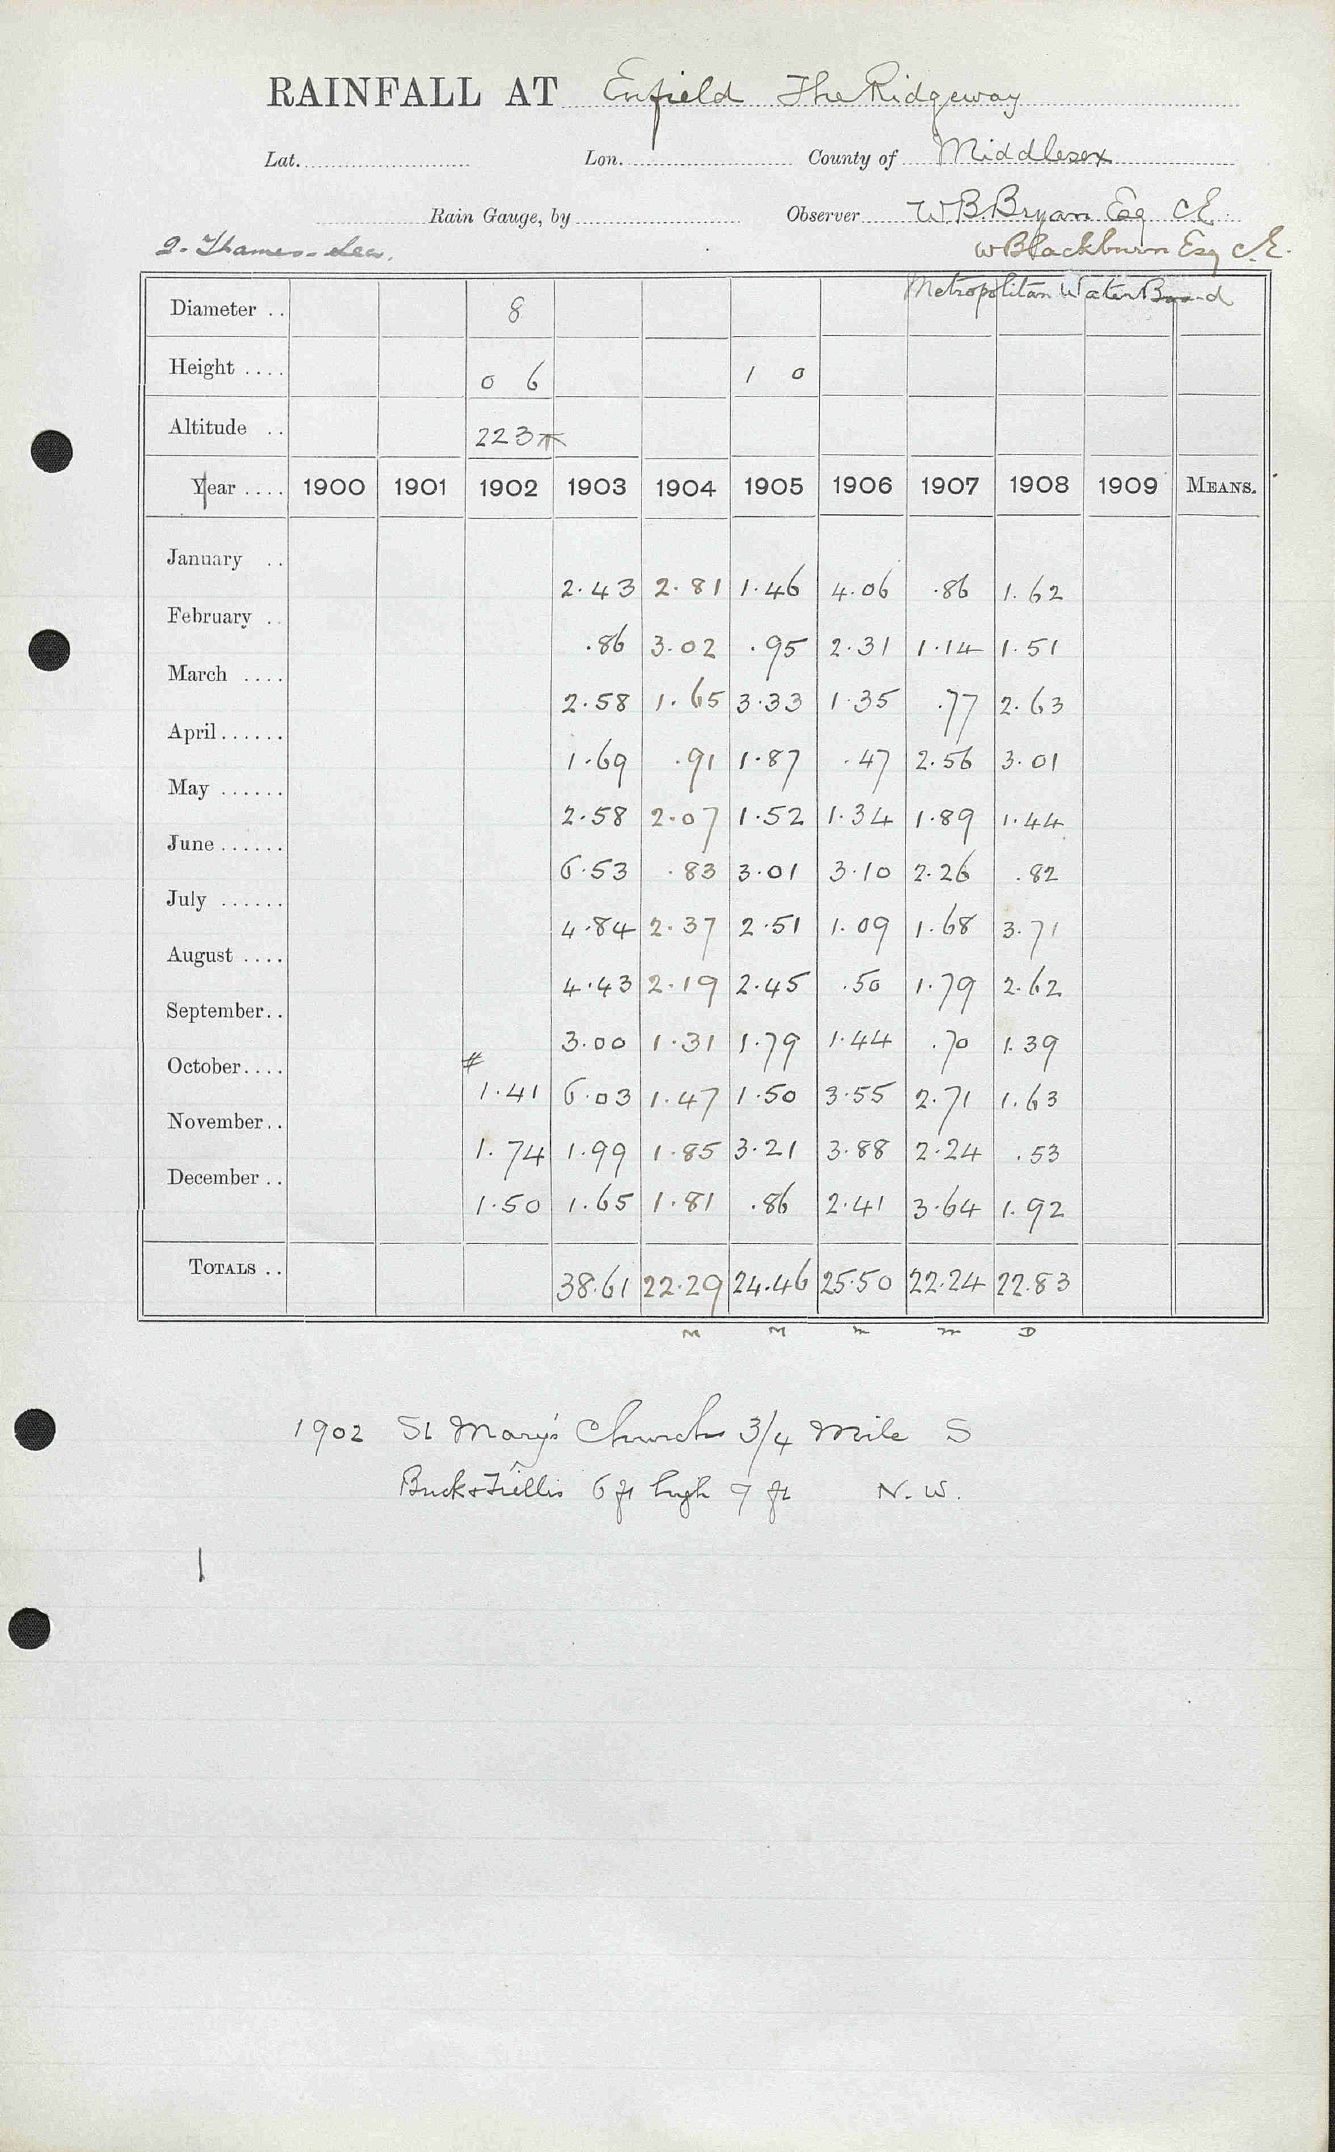 RAINFALL AT Enfield The Ridgeway
Lat. Lon. County of Middlesex
Rain Gauge, by Observer W.B.Bryan Esq C.E.
2. Thames - Lea. W Blackburn Esq C.E.
Metropolitan Water Board
Diameter .. 8
Height .... 0 6 1 0
Altitude .. 223
Year .... 1900 1901 1902 1903 1904 1905 1906 1907 1908 1909 MEANS.
January .. 2.43 2.81 1.46 4.06 .86 1.62
February .. .86 3.02 .95 2.31 1.14 1.51
March .... 2.58 1.65 3.33 1.35 .77 2.63
April...... 1.69 .91 1.87 .47 2.56 3.01
May ...... 2.58 2.07 1.52 1.34 1.89 1.44
June...... 6.53 .83 3.01 3.10 2.26 .82
July ...... 4.84 2.37 2.51 1.09 1.68 3.71
August .... 4.43 2.19 2.45 .50 1.79 2.62
September.. 3.00 1.31 1.79 1.44 .70 1.39
October.... # 1.41 6.03 1.47 1.50 3.55 2.71 1.63
November.. 1.74 1.99 1.85 3.21 3.88 2.24 .53
December .. 1.50 1.65 1.81 .86 2.41 3.64 1.92
TOTALS .. 38.61 22.29 24.46 25.50 22.24 22.83
M M m m D
1902 St Mary's Church 3/4 Mile S
Buck & Trellis 6 ft high 9 ft N.W.